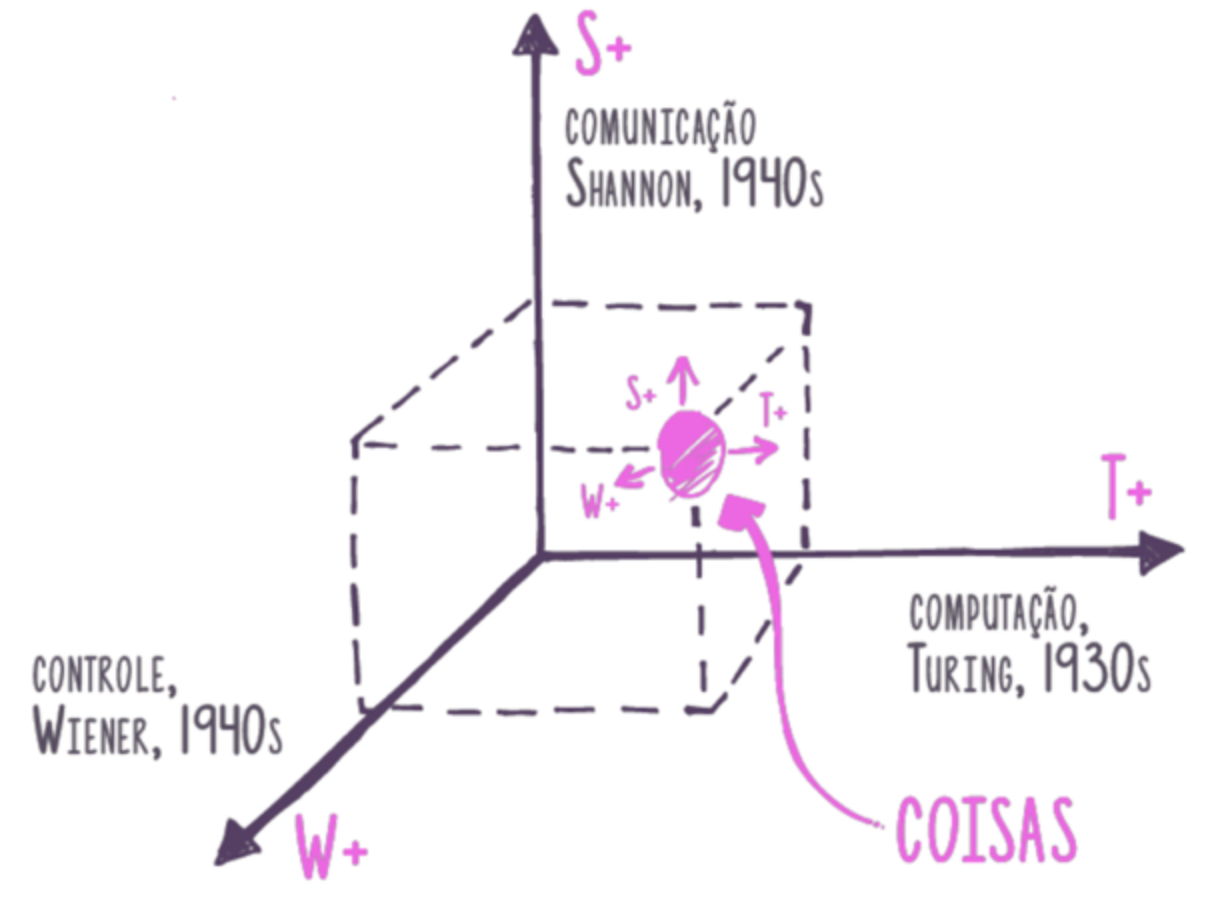 S+
COMUNICAÇÃO
SHANNON, 1940s
S+
T+
W+
T+
COMPUTAÇÃO,
TURING, 1930s
CONTROLE,
WIENER, 1940s
W+
COISAS